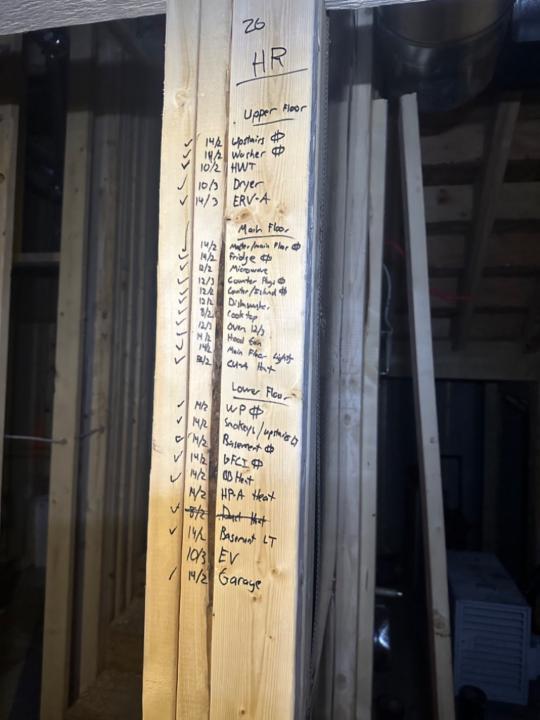 26
HR
Upper Floor
✓ 14/2 Upstairs ф
✓ 14/2 Washer ф
✓ 10/2 HWT
✓ 10/3 Dryer
✓ 14/3 ERV-A
Main Floor
14/2 Master/main Floor ф
14/2 Fridge ф
12/2 Microwave
12/3 Counter Plugs ф
12/2 Counter/Island ф
12/2 Dishwasher
8/2 Cooktop
12/3 Oven 12/3
14/2 Hood Fan
14/2 Main Floor Lights
8/2 Heat
Lower Floor
✓ 14/2 WP ф
✓ 14/2 Smokeys/upstairs
14/2 Basement ф
✓ 14/2 GFCI ф
✓ 14/2 Heat
14/2 HP-A Heat
✓ 8/2 Duct Heat
✓ 14/2 Basement LT
10/3 EV
✓ 14/2 Garage